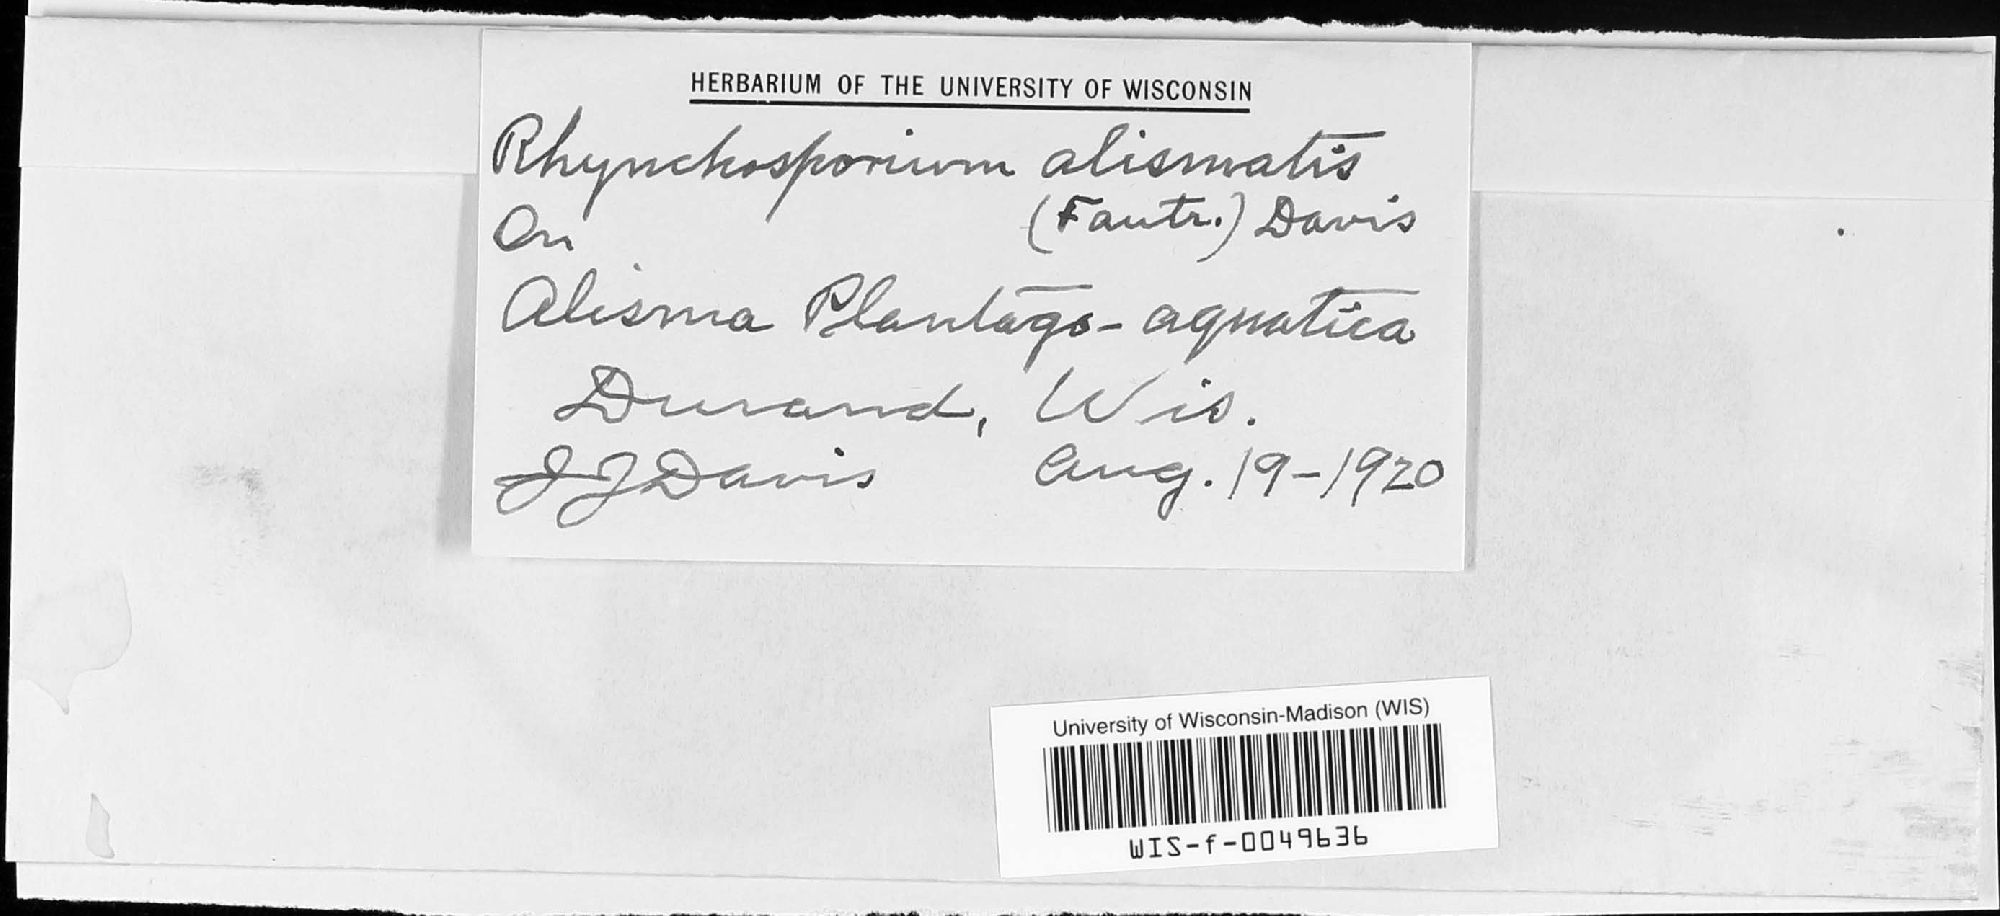 HERBARIUM OF THE UNIVERSITY OF WISCONSIN
Rhynchosporium alismatis
(Fautr.) Davis
On
Alisma Plantago-aquatica
Durand, Wis.
JJDavis Aug. 19-1920
University of Wisconsin-Madison (WIS)
WIS-f-0049636